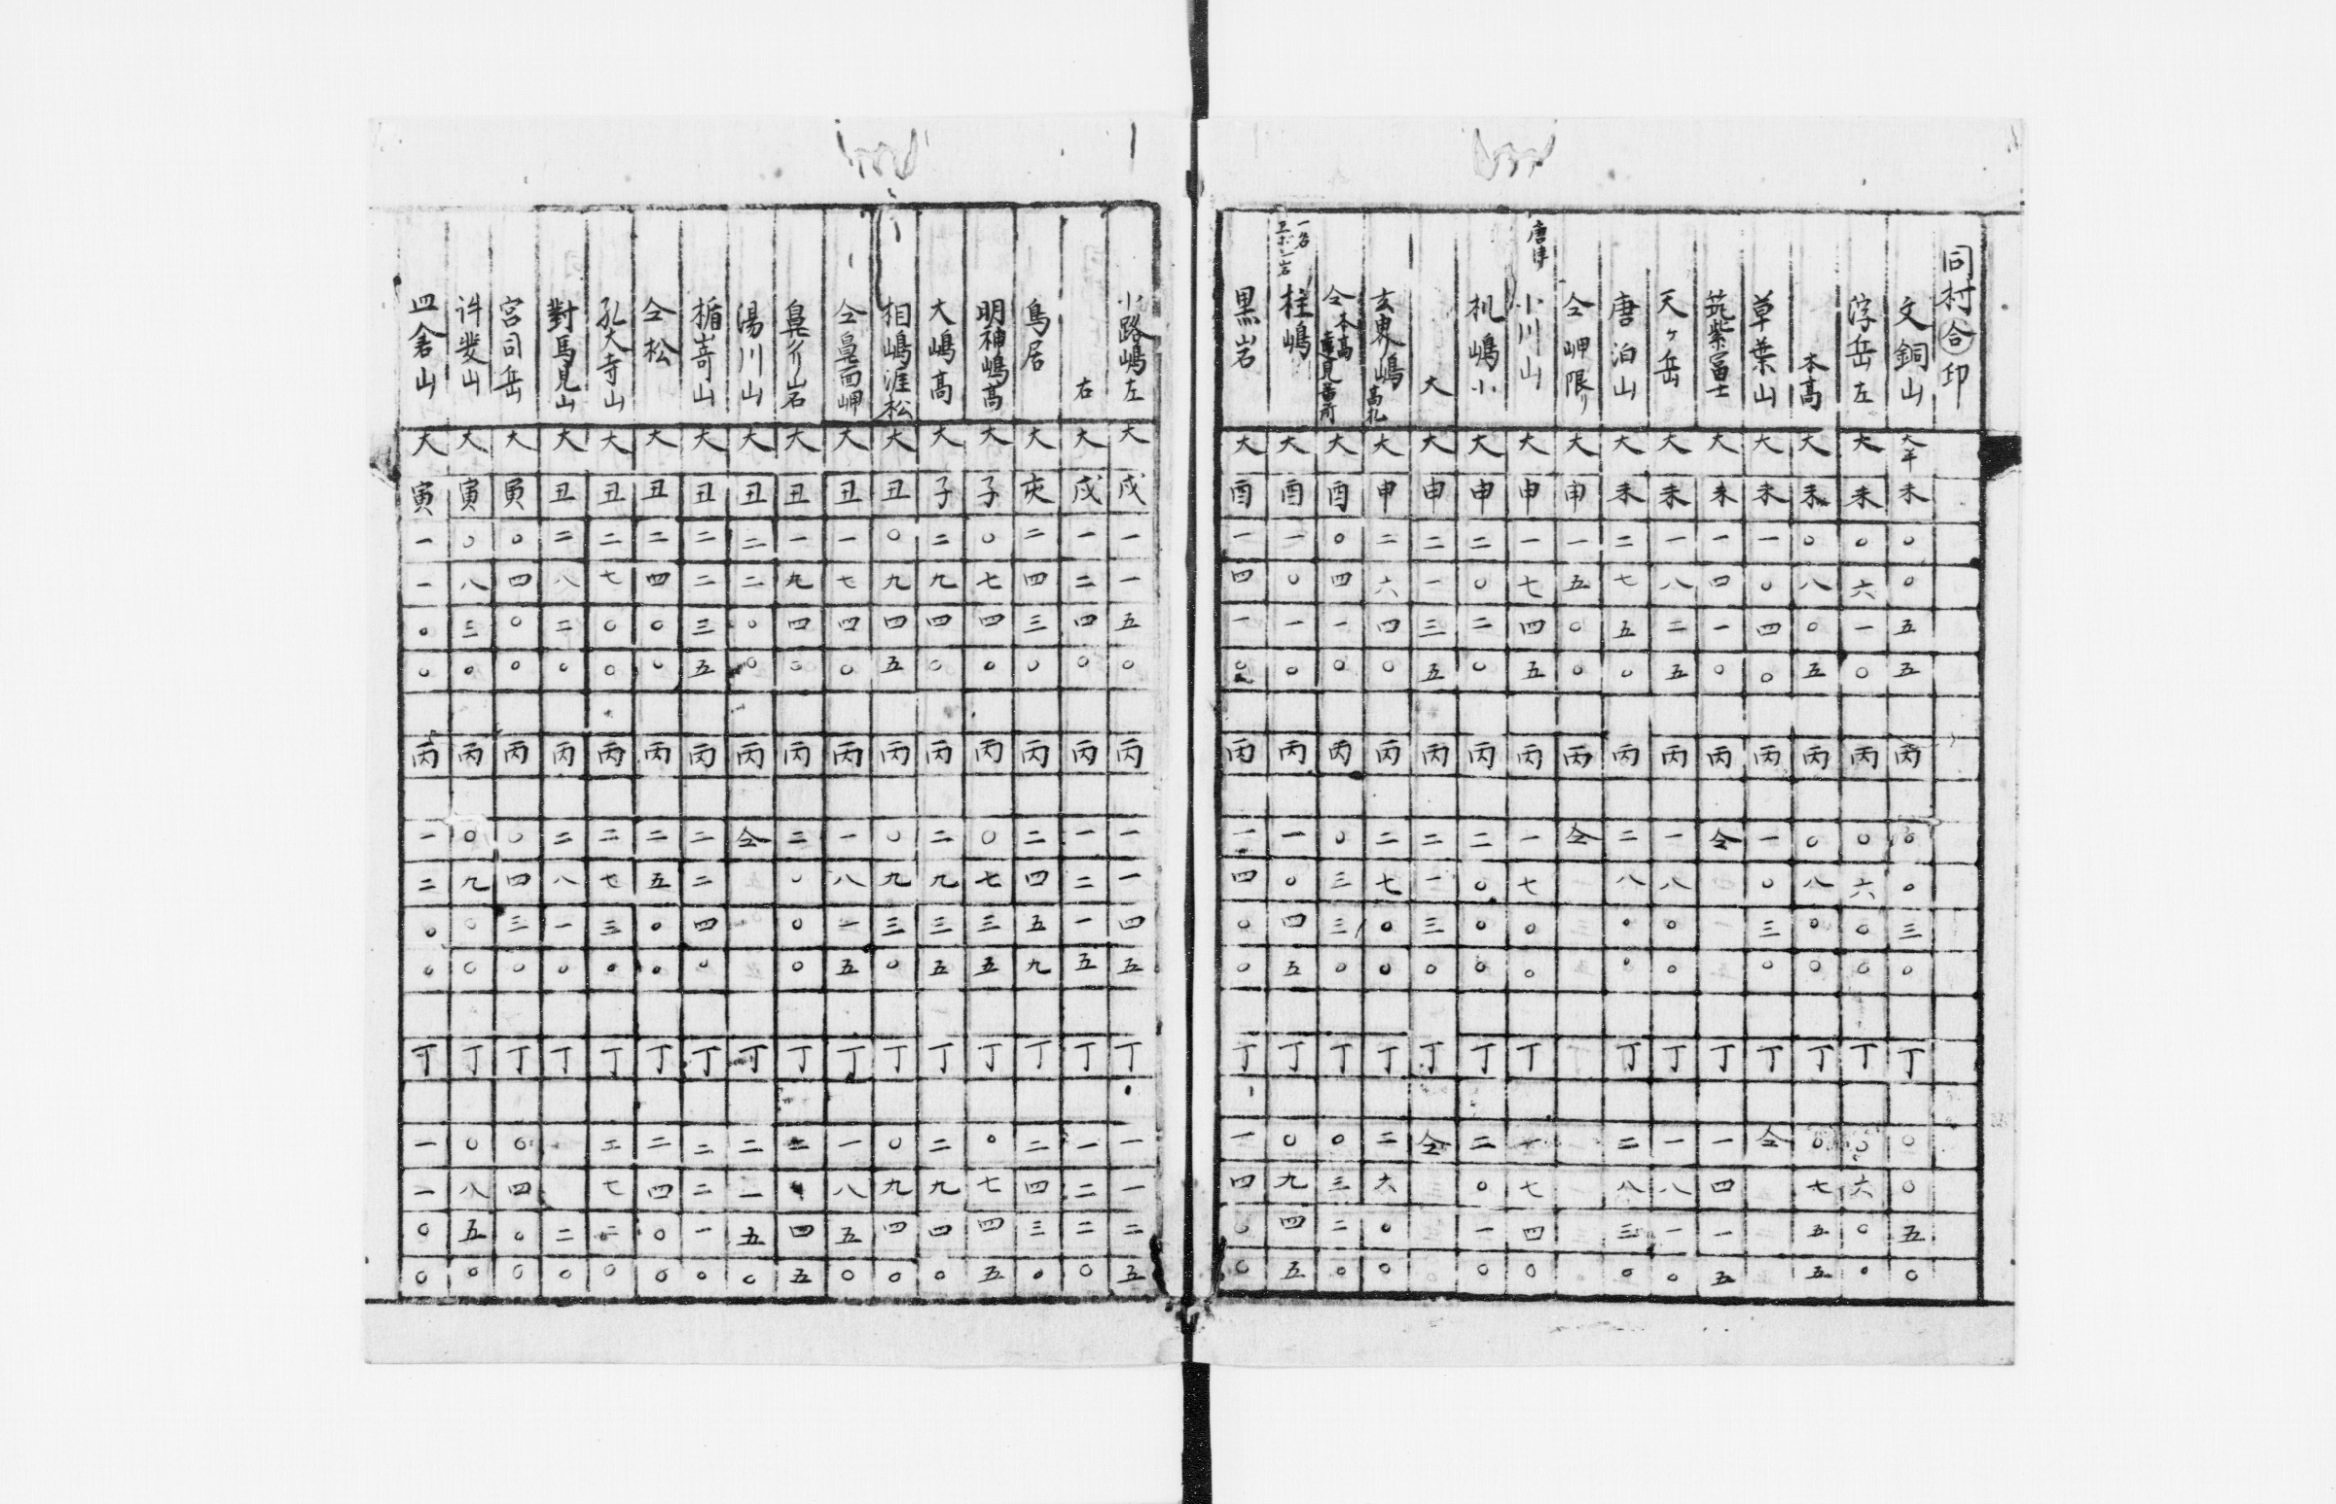 同村合印
文銅山 大半 未 〇 〇 五 五 丙 〇 〇 三 〇 丁 〇 〇 五 〇
浮岳左 大 未 〇 六 一 〇 丙 〇 六 〇 〇 丁 〇 六 〇 〇
本高 大 未 〇 八 〇 五 丙 〇 八 〇 〇 丁 〇 七 五 五
草葉山 大 未 一 〇 四 〇 丙 一 〇 三 〇 丁 仝
筑紫冨士 大 未 一 四 一 〇 丙 仝 丁 一 四 一 五
天ヶ岳 大 未 一 八 二 五 丙 一 八 〇 〇 丁 一 八 一 〇
唐泊山 大 未 二 七 五 〇 丙 二 八 〇 〇 丁 二 八 三 〇
仝岬限リ 大 申 一 五 〇 〇 丙 仝
唐津
小川山 大 申 一 七 四 五 丙 一 七 〇 〇 丁 一 七 四 〇
机嶋小 大 申 二 〇 二 〇 丙 二 〇 〇 〇 丁 二 〇 一 〇
大 大 申 二 一 三 五 丙 二 一 三 〇 丁 仝
玄界嶋高札 大 申 二 六 四 〇 丙 二 七 〇 〇 丁 二 六 〇 〇
仝本高遠見番所 大 酉 〇 四 一 〇 丙 〇 三 三 〇 丁 〇 三 二 〇
一名
柱嶋 大 酉 一 〇 一 〇 丙 一 〇 四 五 丁 〇 九 四 五
黒岩 大 酉 一 四 一 〇 丙 一 四 〇 〇 丁 一 四 〇 〇
小路嶋左 大 戌 一 一 五 〇 丙 一 一 四 五 丁 一 一 二 五
右 大 戌 一 二 四 〇 丙 一 二 一 五 丁 一 二 二 〇
鳥居 大 亥 二 四 三 〇 丙 二 四 五 九 丁 二 四 三 〇
明神嶋高 大 子 〇 七 四 〇 丙 〇 七 三 五 丁 〇 七 四 五
大嶋高 大 子 二 九 四 〇 丙 二 九 三 五 丁 二 九 四 〇
相嶋涯松 大 丑 〇 九 四 五 丙 〇 九 三 〇 丁 〇 九 四 〇
仝鼻面岬 大 丑 一 七 四 〇 丙 一 八 一 五 丁 一 八 五 〇
鼻グリ山石 大 丑 一 九 四 〇 丙 二 〇 〇 〇 丁 四 五
湯川山 大 丑 二 二 〇 〇 丙 仝 丁 二 一 五 〇
楯嵜山 大 丑 二 二 三 五 丙 二 二 四 〇 丁 二 二 一 〇
仝松 大 丑 二 四 〇 〇 丙 二 五 〇 〇 丁 二 四 〇 〇
孔大寺山 大 丑 二 七 〇 〇 丙 二 七 三 〇 丁 二 七 二 〇
對馬見山 大 丑 二 八 二 〇 丙 二 八 一 〇 丁 二 〇
宮司岳 大 寅 〇 四 〇 〇 丙 〇 四 三 〇 丁 〇 四 〇 〇
許斐山 大 寅 〇 八 三 〇 丙 〇 九 〇 〇 丁 〇 八 五 〇
皿倉山 大 寅 一 一 〇 〇 丙 一 二 〇 〇 丁 一 一 〇 〇